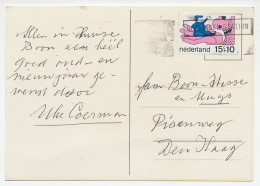 Allen in Huize
Boon een heil
goed oud- en
nieuwjaar ge-
wenst door
Uke Coerman
nederland 15+10
Fam. Boon-
en Muys
Den Haag